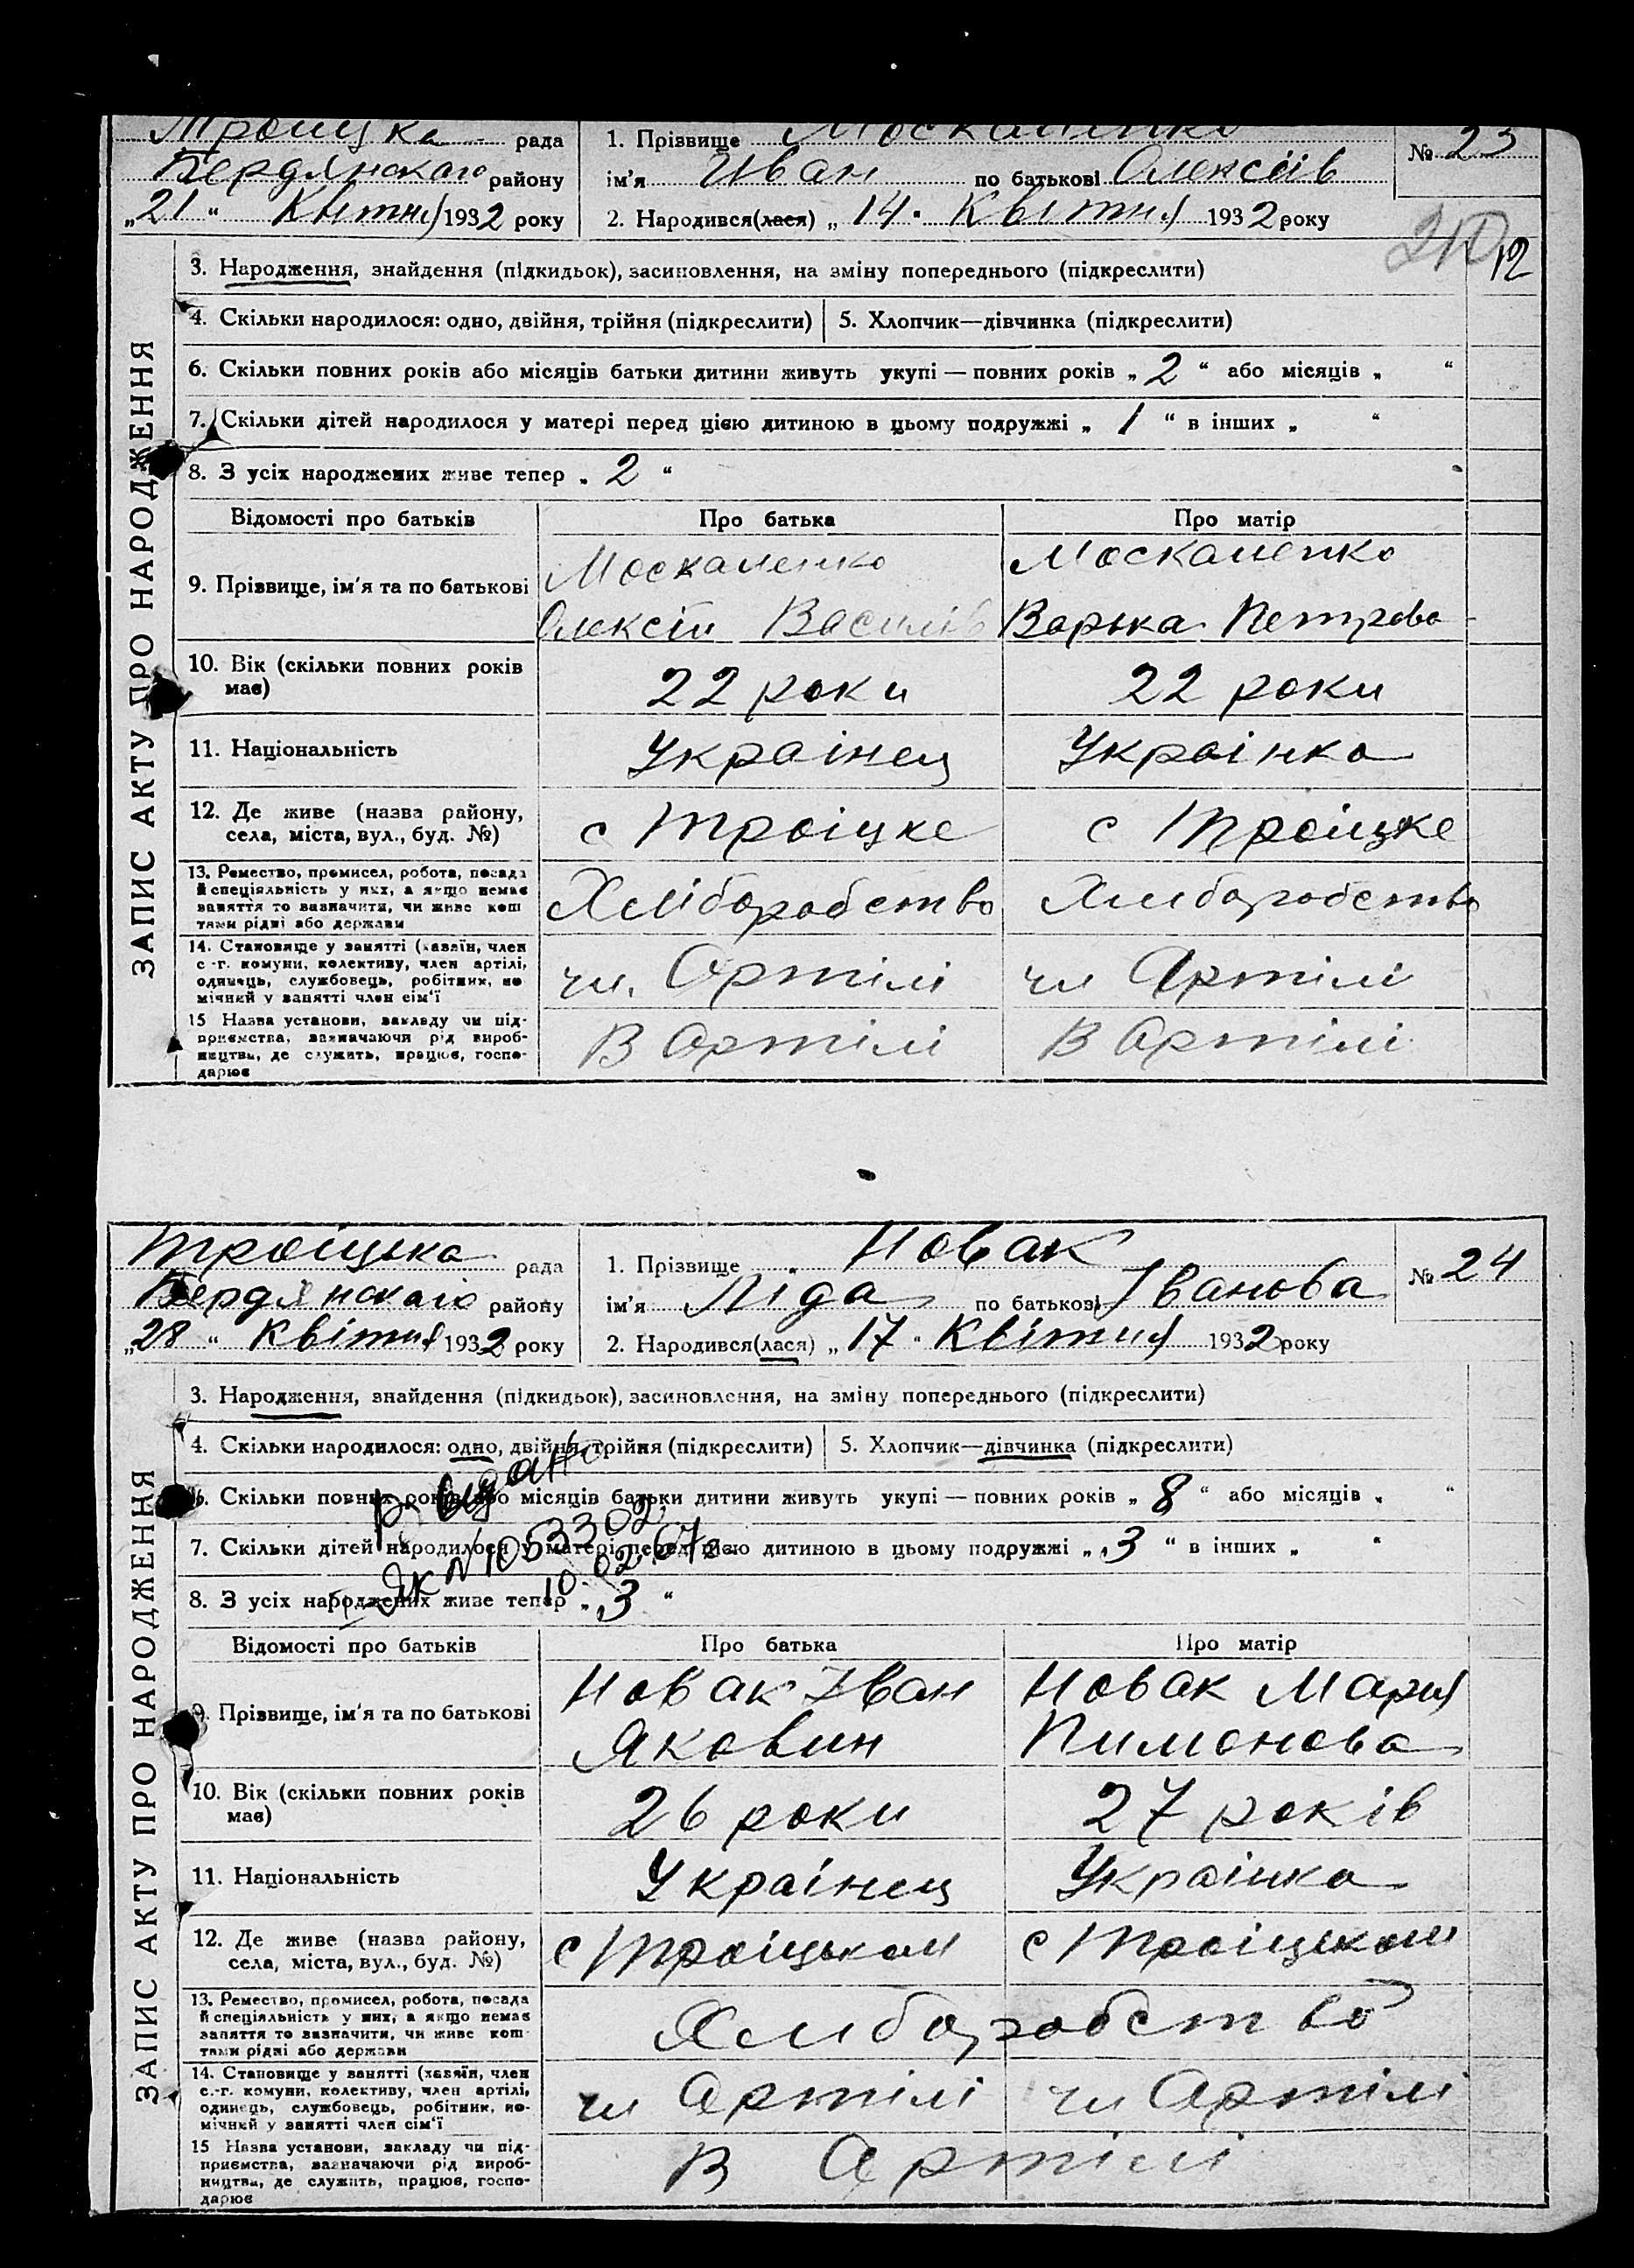 Троіцка рада
Бердянскаго району
„21“ Квітня 1932 року
1. Прізвище Москаленко
ім'я Иван по батькові Олексіїв
2. Народився(лася) „14“ Квітня 1932 року
№ 23
12
ЗАПИС АКТУ ПРО НАРОДЖЕННЯ
3. Народження, знайдення (підкидьок), засиновлення, на зміну попереднього (підкреслити)
4. Скільки народилося: одно, двійня, трійня (підкреслити) 5. Хлопчик—дівчинка (підкреслити)
6. Скільки повних років або місяців батьки дитини живуть укупі — повних років „2“ або місяців „ “
7. Скільки дітей народилося у матері перед цією дитиною в цьому подружжі „1“ в інших „ “
8. З усіх народжених живе тепер „2“
Відомості про батьків Про батька Про матір
9. Прізвище, ім'я та по батькові
Москаленко Москаленко
Олексій Василів Варька Петрова
10. Вік (скільки повних років
має)
22 роки 22 роки
11. Національність Украінец Украінка
12. Де живе (назва району,
села, міста, вул., буд. №)
с Троіцке с Троіцке
13. Ремество, промисел, робота, посада
й спеціяльність у них, а якщо немає
заняття то зазначити, чи живе кош
тами рідні або держави
Хліборобство Хлиборобство
14. Становище у занятті (хазяїн, член
с.-г. комуни, колективу, член артілі,
одинець, службовець, робітник, по-
мічний у занятті член сім'ї
чл. Артілі чл Артілі
15 Назва установи, закладу чи під-
приємства, зазначаючи рід вироб-
ництва, де служить, працює, госпо-
дарює
В Артілі В Артілі
Троіцька рада
Бердянскаго району
„28“ Квітня 1932 року
1. Прізвище Новак
ім'я Ліда по батькові Іванова
2. Народився(лася) „17“ Квітня 1932 року
№ 24
ЗАПИС АКТУ ПРО НАРОДЖЕННЯ
3. Народження, знайдення (підкидьок), засиновлення, на зміну попереднього (підкреслити)
4. Скільки народилося: одно, двійня, трійня (підкреслити) 5. Хлопчик—дівчинка (підкреслити)
6. Скільки повних років або місяців батьки дитини живуть укупі — повних років „8“ або місяців „ “
7. Скільки дітей народилося у матері перед цією дитиною в цьому подружжі „3“ в інших „ “
8. З усіх народжених живе тепер „3“
выдано
ЯК № 1053302
10.02.67г.
Відомості про батьків Про батька Про матір
9. Прізвище, ім'я та по батькові
Новак Іван Новак Мария
Яковин Пимонова
10. Вік (скільки повних років
має)
26 роки 27 років
11. Національність Украінец Украінка
12. Де живе (назва району,
села, міста, вул., буд. №)
с Троіцьком с Троіцьком
13. Ремество, промисел, робота, посада
й спеціяльність у них, а якщо немає
заняття то зазначити, чи живе кош-
тами рідні або держави
Хлиборобство
14. Становище у занятті (хазяїн, член
с.-г. комуни, колективу, член артілі,
одинець, службовець, робітник, по-
мічний у занятті член сім'ї
чл Артілі чл Артілі
15 Назва установи, закладу чи під-
приємства, зазначаючи рід вироб-
ництва, де служить, працює, госпо-
дарює
В Артілі